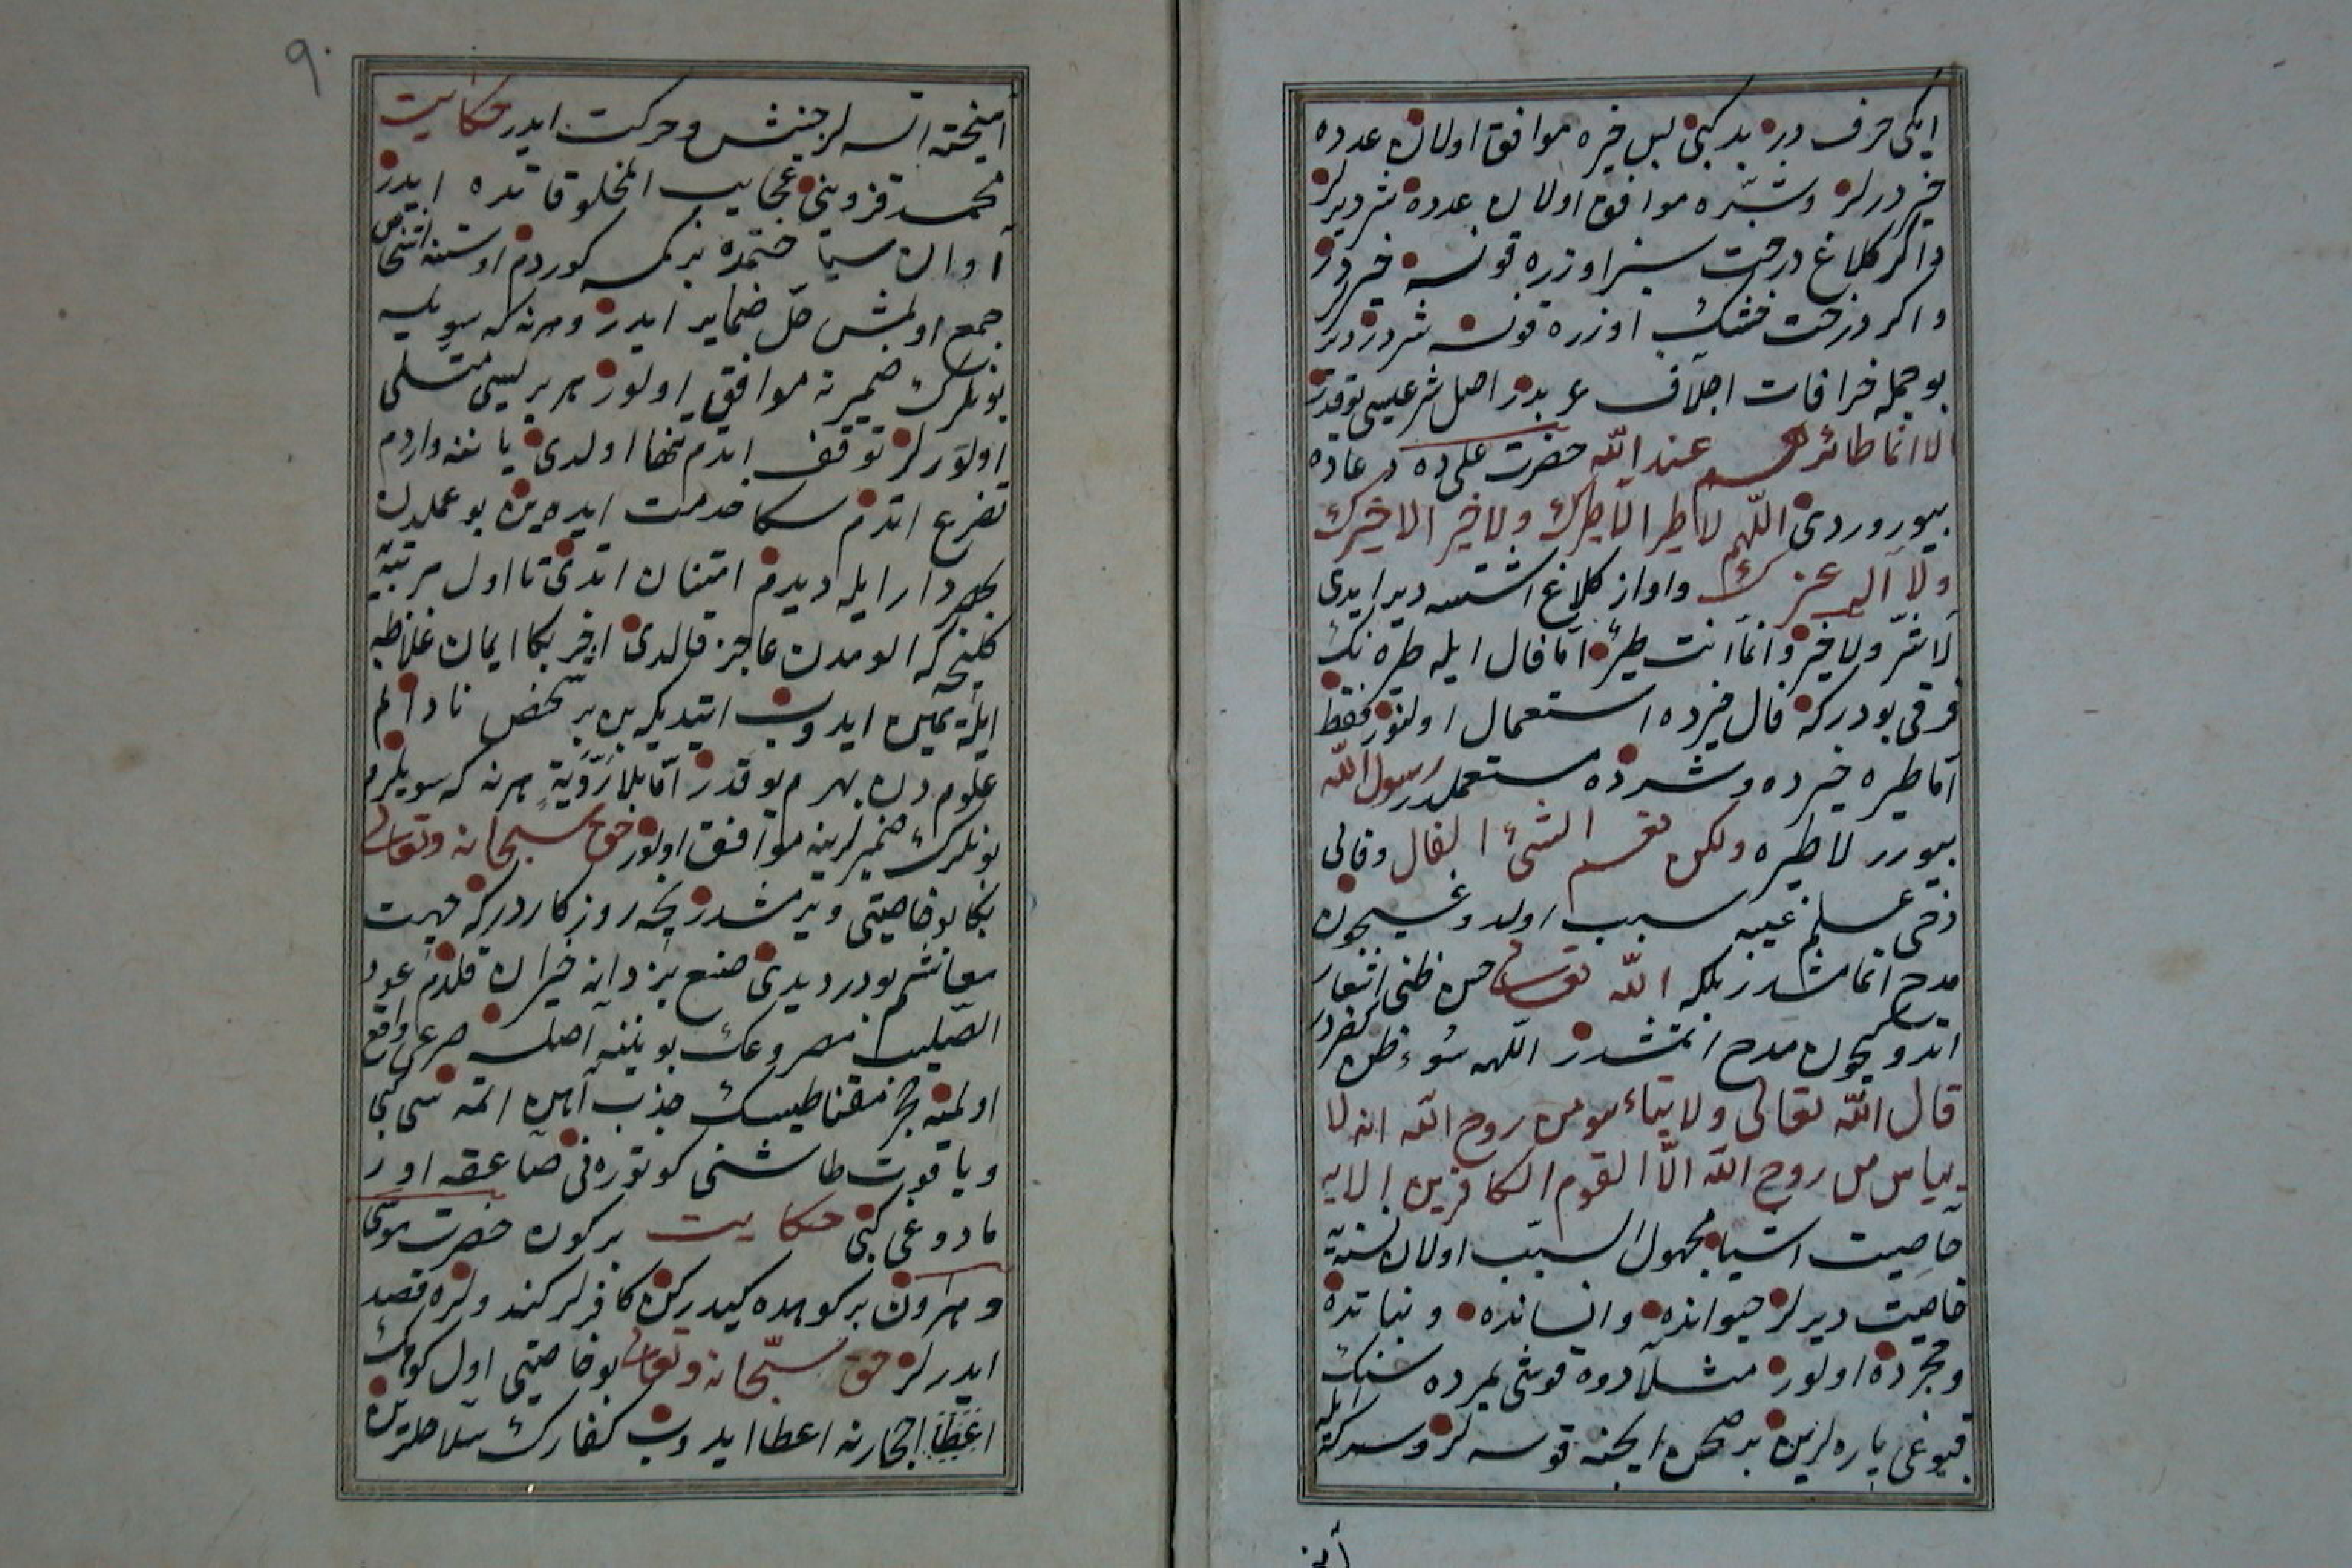 ایکی حرف در بد کبی بس خیره موافق اولان عدده
خیر درلر وشره موافق اولان عدده شر دیرلر
واکر کلاغ درخت سبز اوزره قونسه خیر در
واکر درخت خشک اوزره قونسه شردر دیر
بو جمله خرافات اجلاف عربدر اصل شرعیسی یوقدر
الا انما طائرهم عند الله حضرت علی ده دعاده
بیوروردی اللهم لا طیر الا طیرک ولا خیر الا خیرک
ولا اله غیرک واواز کلاغ اشتسه دیر ایدی
لا شر ولا خیر وانما انت طیر اما فال ایله طیره نک
فرقی بودرکه فال خیرده استعمال اولنور فقط
اما طیره خیرده وشرده مستعملدر رسول الله
بیورر لا طیره ولکن نعم الشئ الفال وفالی
دخی علم غیبه سبب اولدوغیچون
مدح اتمامشدر بلکه الله تعالی حسن ظنی اشعار
اتدوکیچون مدح اتمشدر اللهه سوء ظن کفردر
قال الله تعالی ولا تیأسو من روح الله انه لا
ییاس من روح الله الا القوم الکافرین الایه
خاصیت اشیا مجهول السبب اولان نسنیه
خاصیت دیرلر حیوانده وانسانده ونباتده
وحجرده اولور مثلا دوه قوشی یمرده سنک
قیوغی پاره لرین بر صحن ایچنه قوسه لر وسرکه ایله
امیخته اتسه لر جنبش وحرکت ایدر حکایت
محمد قزوینی عجایب المخلوقاتده ایدر
اوان سیاحتمده بر کمسه کوردم اوستنه اشخاص
جمع اولمش حل ضمایر ایدر وهر نه که سویلیه
بونلرک ضمیرنه موافق اولور هر بریسی متسلی
اولورلر توقف اتدم تنها اولدی یاننه واردم
تضرع اتدم سکا خدمت ایده ین بو عملدن
خبردار ایله دیدم امتنان اتدی تا اول مرتبه
کلنجه که الومدن عاجز قالدی اخر بکا ایمان غلاظه
ایله یمین ایدوب ایتدیکه بن بر شخص نادانم
علومدن بهرم یوقدر اما بلا رویة هر نه که سویلرم
بونلرک ضمیرلرینه موافق اولور حق سبحانه وتعالی
بکا بو خاصیتی ویرمشدر نچه روزکاردرکه جهت
معاشم بودر دیدی صنع یزدانه حیران قلدم عود
الصلیب مصروعک بویننه اصلسه صرعی واقع
اولمیه حجر مقناطیسک جذب آهن اتمه سی کبی
ویاقوت طاشنی کوتوره نی صاعقه اور
مادوغی کبی حکایت بر کون حضرت موسی
وهارون بر کوهده کیدرکن کافرلر کندولره قصد
ایدرلر حق سبحانه وتعالی بو خاصیتی اول کوهک
احجارنه اعطا ایدوب کفارک سلاحلرین